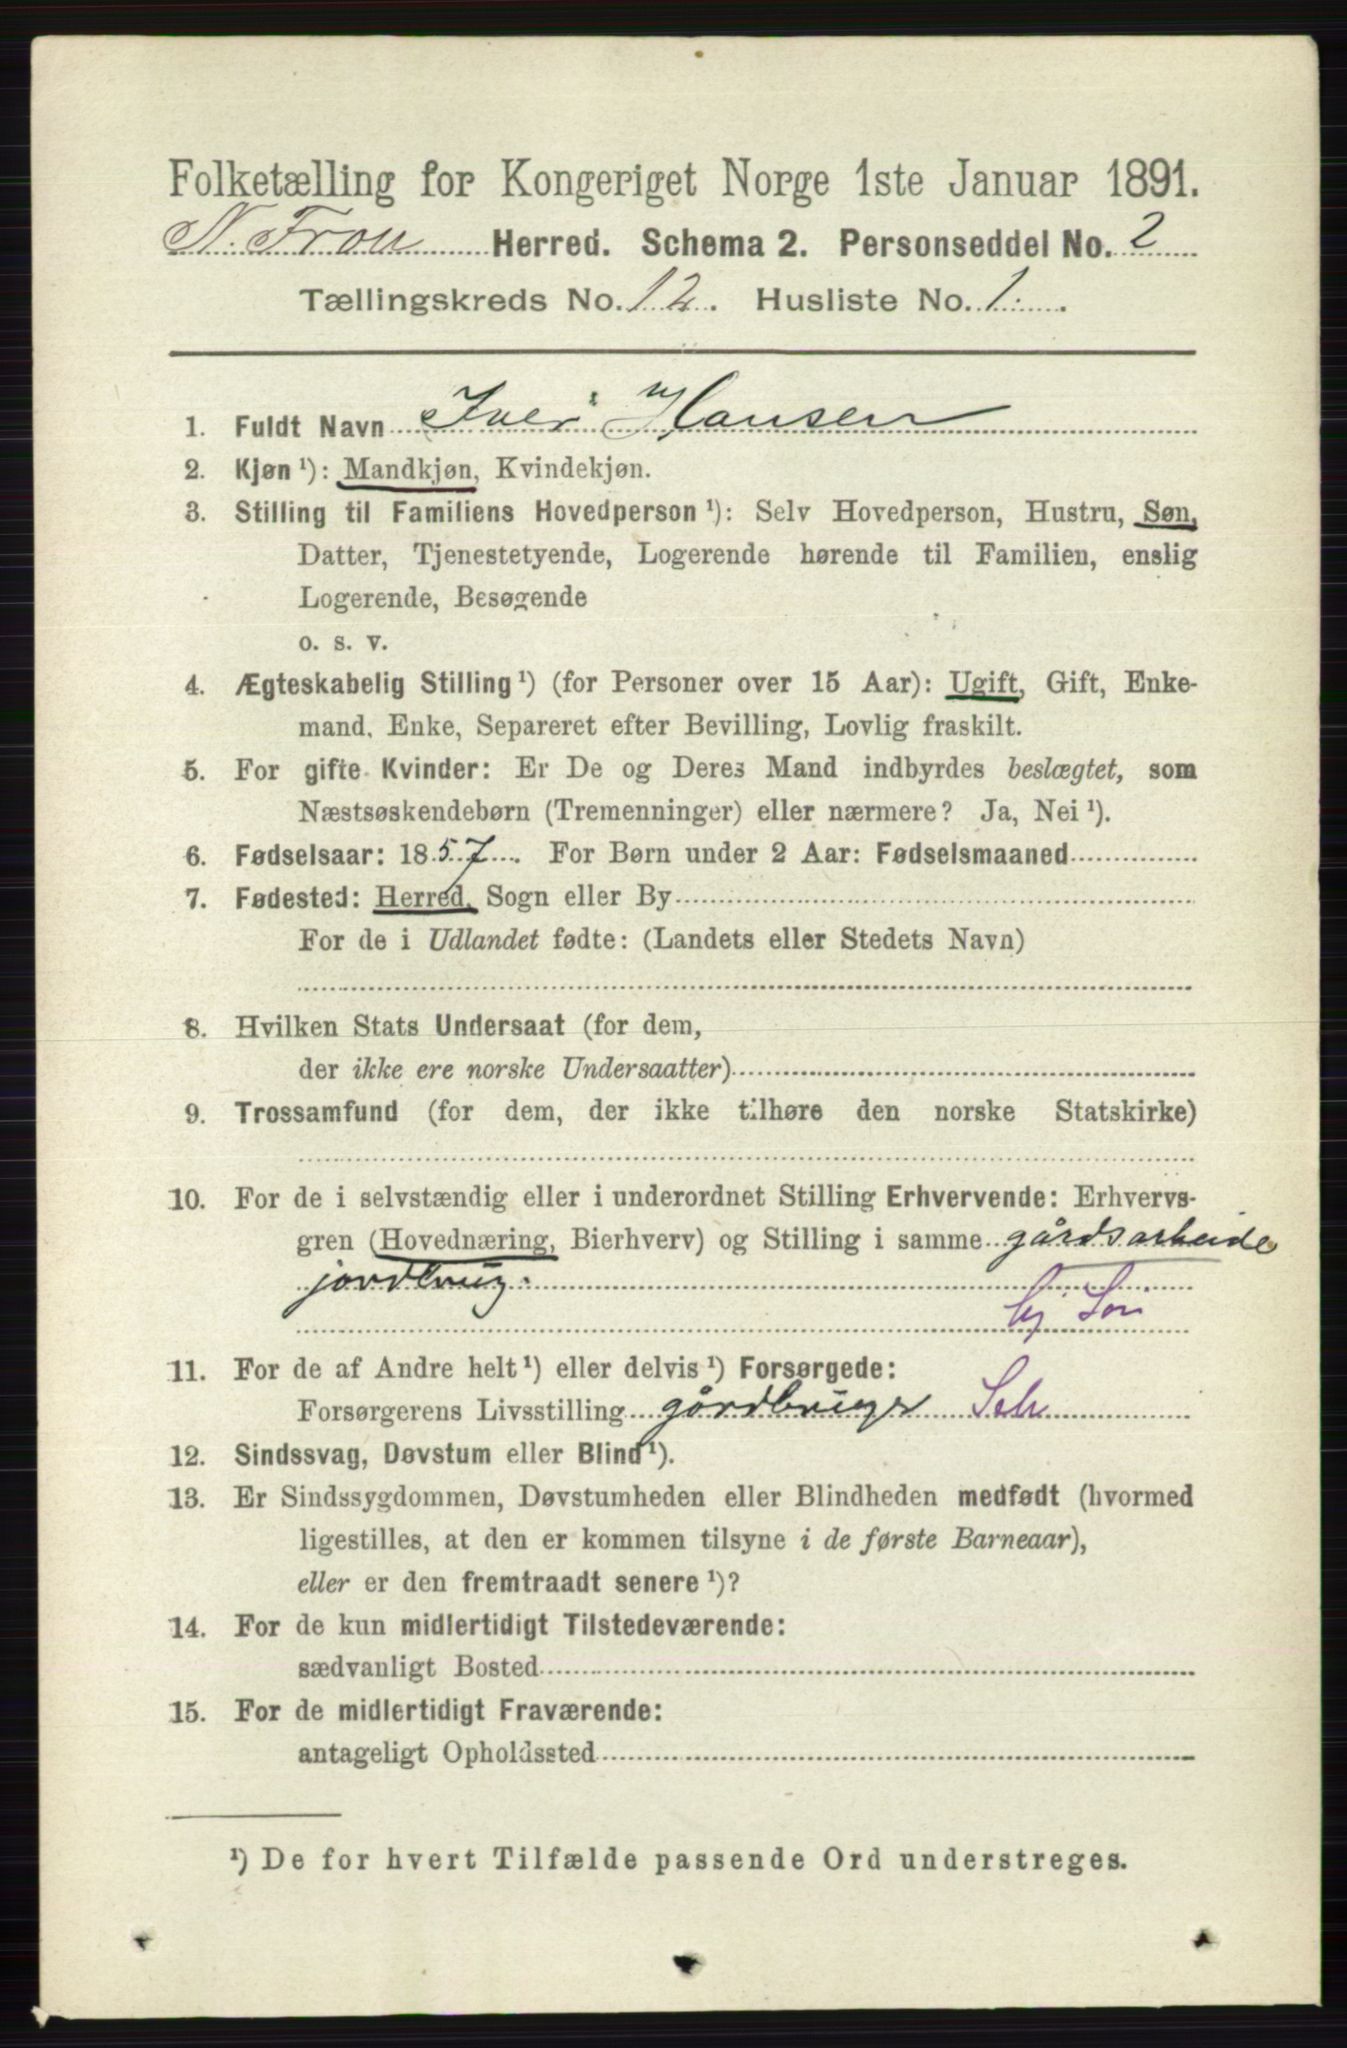 Folketælling for Kongeriget Norge 1ste Januar 1891.
N. Fron Herred. Schema 2. Personseddel No. 2
Tællingskreds No. 12. Husliste No. 1.
1. Fuldt Navn Iver Hansen
2. Kjøn ¹): Mandkjøn, Kvindekjøn.
3. Stilling til Familiens Hovedperson ¹): Selv Hovedperson, Hustru, Søn,
Datter, Tjenestetyende, Logerende hørende til Familien, enslig
Logerende, Besøgende
o. s. v.
4. Ægteskabelig Stilling ¹) (for Personer over 15 Aar): Ugift, Gift, Enke-
mand, Enke, Separeret efter Bevilling, Lovlig fraskilt.
5. For gifte Kvinder: Er De og Deres Mand indbyrdes beslægtet, som
Næstsøskendebørn (Tremenninger) eller nærmere? Ja, Nei ¹).
6. Fødselsaar: 1857. For Børn under 2 Aar: Fødselsmaaned
7. Fødested: Herred, Sogn eller By
For de i Udlandet fødte: (Landets eller Stedets Navn)
8. Hvilken Stats Undersaat (for dem,
der ikke ere norske Undersaatter)
9. Trossamfund (for dem, der ikke tilhøre den norske Statskirke)
10. For de i selvstændig eller i underordnet Stilling Erhvervende: Erhvervs-
gren (Hovednæring, Bierhverv) og Stilling i samme gårdsarbeide
jordbrug.
11. For de af Andre helt ¹) eller delvis ¹) Forsørgede:
Forsørgerens Livsstilling gårdbruger Selv
12. Sindssvag, Døvstum eller Blind ¹).
13. Er Sindssygdommen, Døvstumheden eller Blindheden medfødt (hvormed
ligestilles, at den er kommen tilsyne i de første Barneaar),
eller er den fremtraadt senere ¹)?
14. For de kun midlertidigt Tilstedeværende:
sædvanligt Bosted
15. For de midlertidigt Fraværende:
antageligt Opholdssted
¹) De for hvert Tilfælde passende Ord understreges.